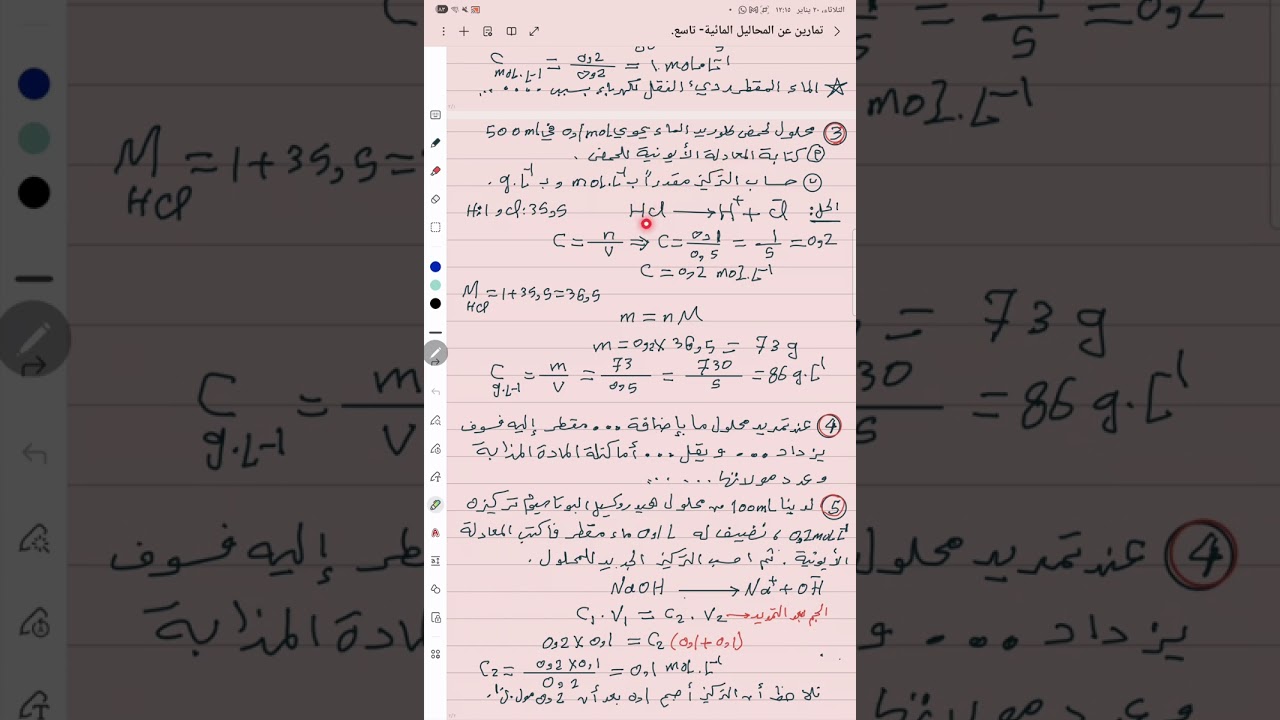 الثلاثاء، ٢٠ يناير ١٢:١٥
تمارين عن المحاليل المائية- تاسع.
C mol.L⁻¹ = 0,2/0,2 = 1 mol.L⁻¹
☆ الماء المقطر رديء النقل للكهرباء بسبب ....
③ محلول لحمض كلوريد الماء يحوي 0,1mol في 500ml
كتابة المعادلة الأيونية للحمض.
ب حساب التركيز مقدراً ب mol.L⁻¹ و ب g.L⁻¹.
الحل: HCl ⟶ H⁺ + Cl⁻ H:1 و Cl:35,5
C = n/V ⇒ C = 0,1/0,5 = 1/5 = 0,2
C = 0,2 mol.L⁻¹
M HCl = 1+35,5 = 36,5
m = n M
m = 0,2 x 36,5 = 73 g
C g.L⁻¹ = m/V = 73/0,5 = 730/5 = 86 g.L⁻¹
④ عند تمديد محلول ما بإضافة ... مقطر إليه فسوف
يزداد ... ويقل ... أما كتلة المادة المذابة
وعدد مولاتها .....
⑤ لدينا 100mL من محلول هيدروكسيد البوتاسيوم تركيزه
0,2mol.L⁻¹، نضيف له 0,1 L ماء مقطر فاكتب المعادلة
الأيونية. ثم احسب التركيز الجديد للمحلول.
NaOH ⟶ Na⁺ + OH⁻
C₁.V₁ = C₂.V₂ → الحجم بعد التمديد
0,2 x 0,1 = C₂ (0,1+0,1)
C₂ = 0,2 x 0,1/0,2 = 0,1 mol.L⁻¹
نلاحظ أن التركيز أصبح 0,1 بعد أن 0,2 مول.ل⁻¹.